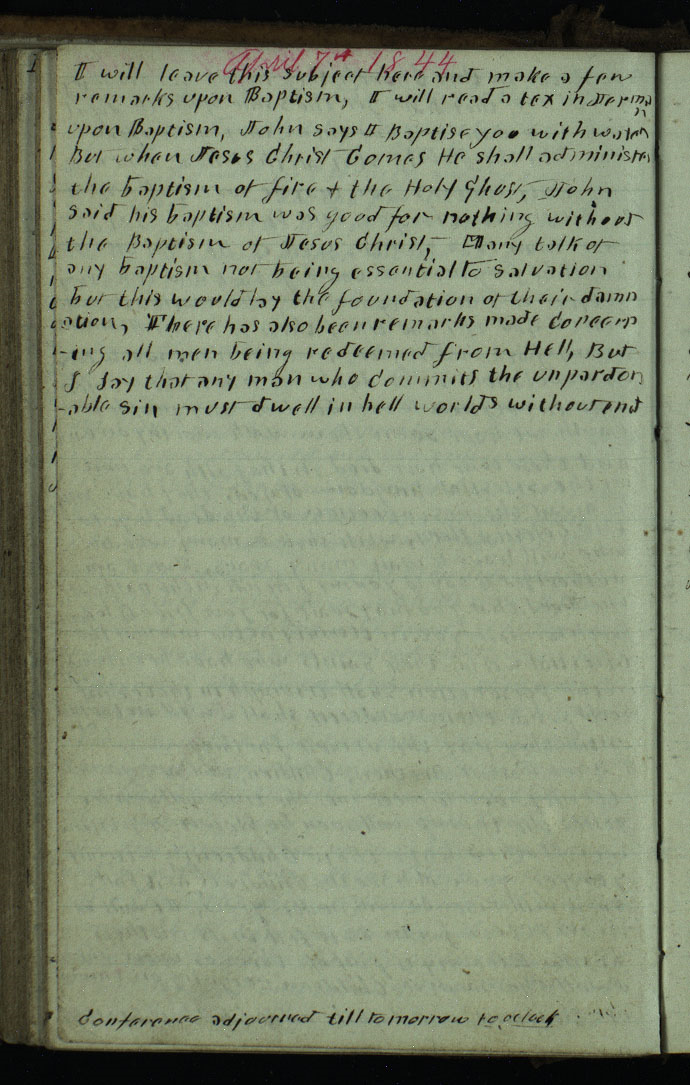 April 7th 1844
I will leave this subject here and make a few
remarks upon Baptism, I will read a tex in Jerman
upon Baptism, John says I Baptise you with water
But when Jesus Christ Comes He shall administer
the baptism of fire & the Holy Ghost, John
said his baptism was good for nothing without
the Baptism of Jesus Christ, Many talk of
any baptism not being essential to salvation
but this would lay the foundation of their damn
ation, There has also been remarks made concern
-ing all men being redeemed from Hell, But
I say that any man who commits the unpardon
-able sin must dwell in hell worlds without end
Conference adjourned till tomorrow 10 oclock